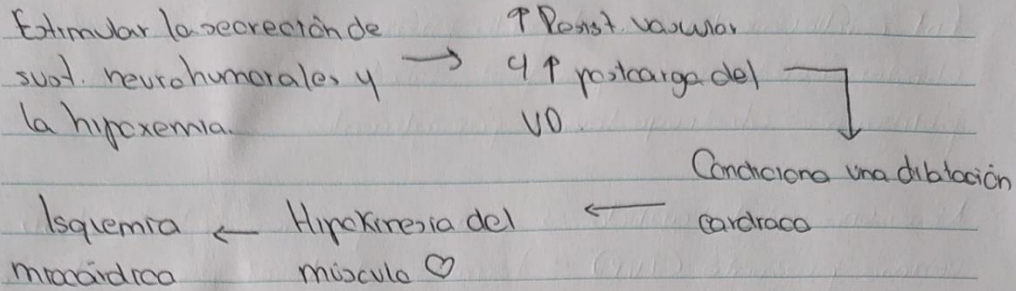 Estimular la secreción de
sust. neurohumorales y
la hipoxemia.
→ ↑ Resist. vascular
y ↑ postcarga del
VD
Condiciona una dilatación
cardiaca
← Hipokinesia del
músculo ♡
← Isquemia
miocárdica